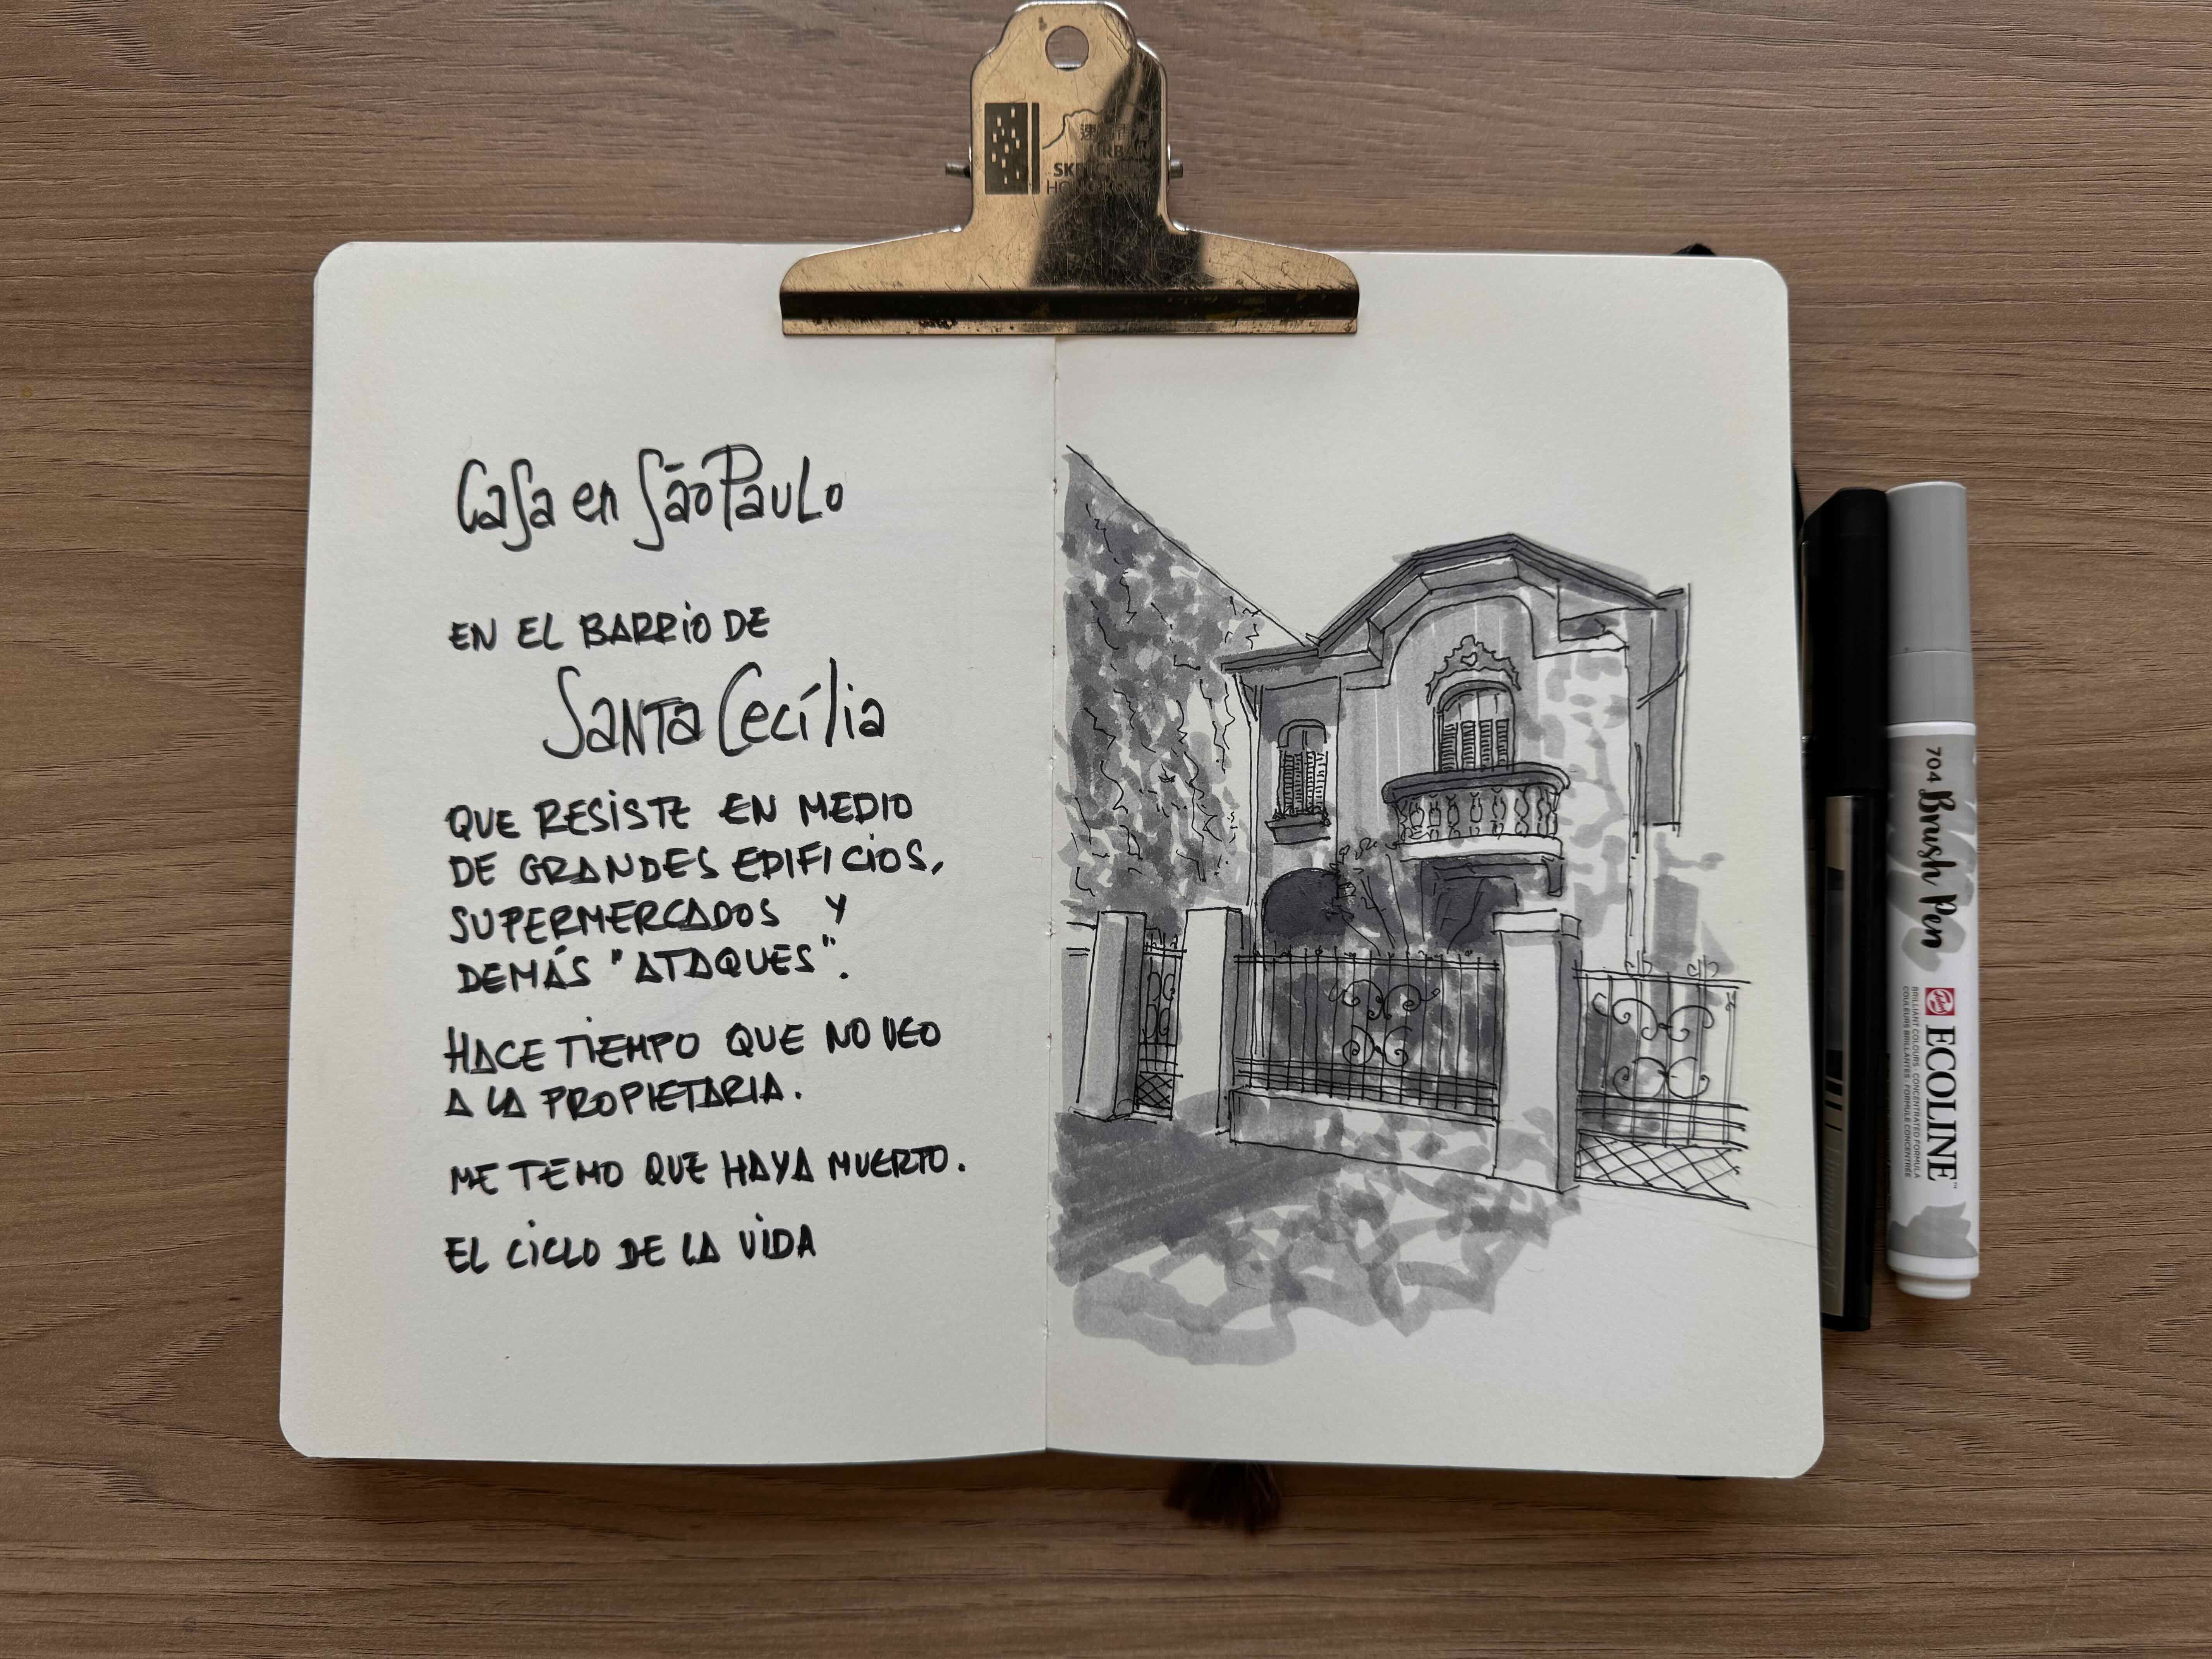 速寫香港
URBAN
SKETCHERS
HONG KONG
Casa en São Paulo
EN EL BARRIO DE
Santa Cecília
QUE RESISTE EN MEDIO
DE GRANDES EDIFICIOS,
SUPERMERCADOS Y
DEMÁS "ATAQUES".
HACE TIEMPO QUE NO VEO
A LA PROPIETARIA.
ME TEMO QUE HAYA MUERTO.
EL CICLO DE LA VIDA
704 Brush Pen
Talens
ECOLINE
BRILLIANT COLOURS · CONCENTRATED FORMULA
COULEURS BRILLANTES · FORMULE CONCENTRÉE